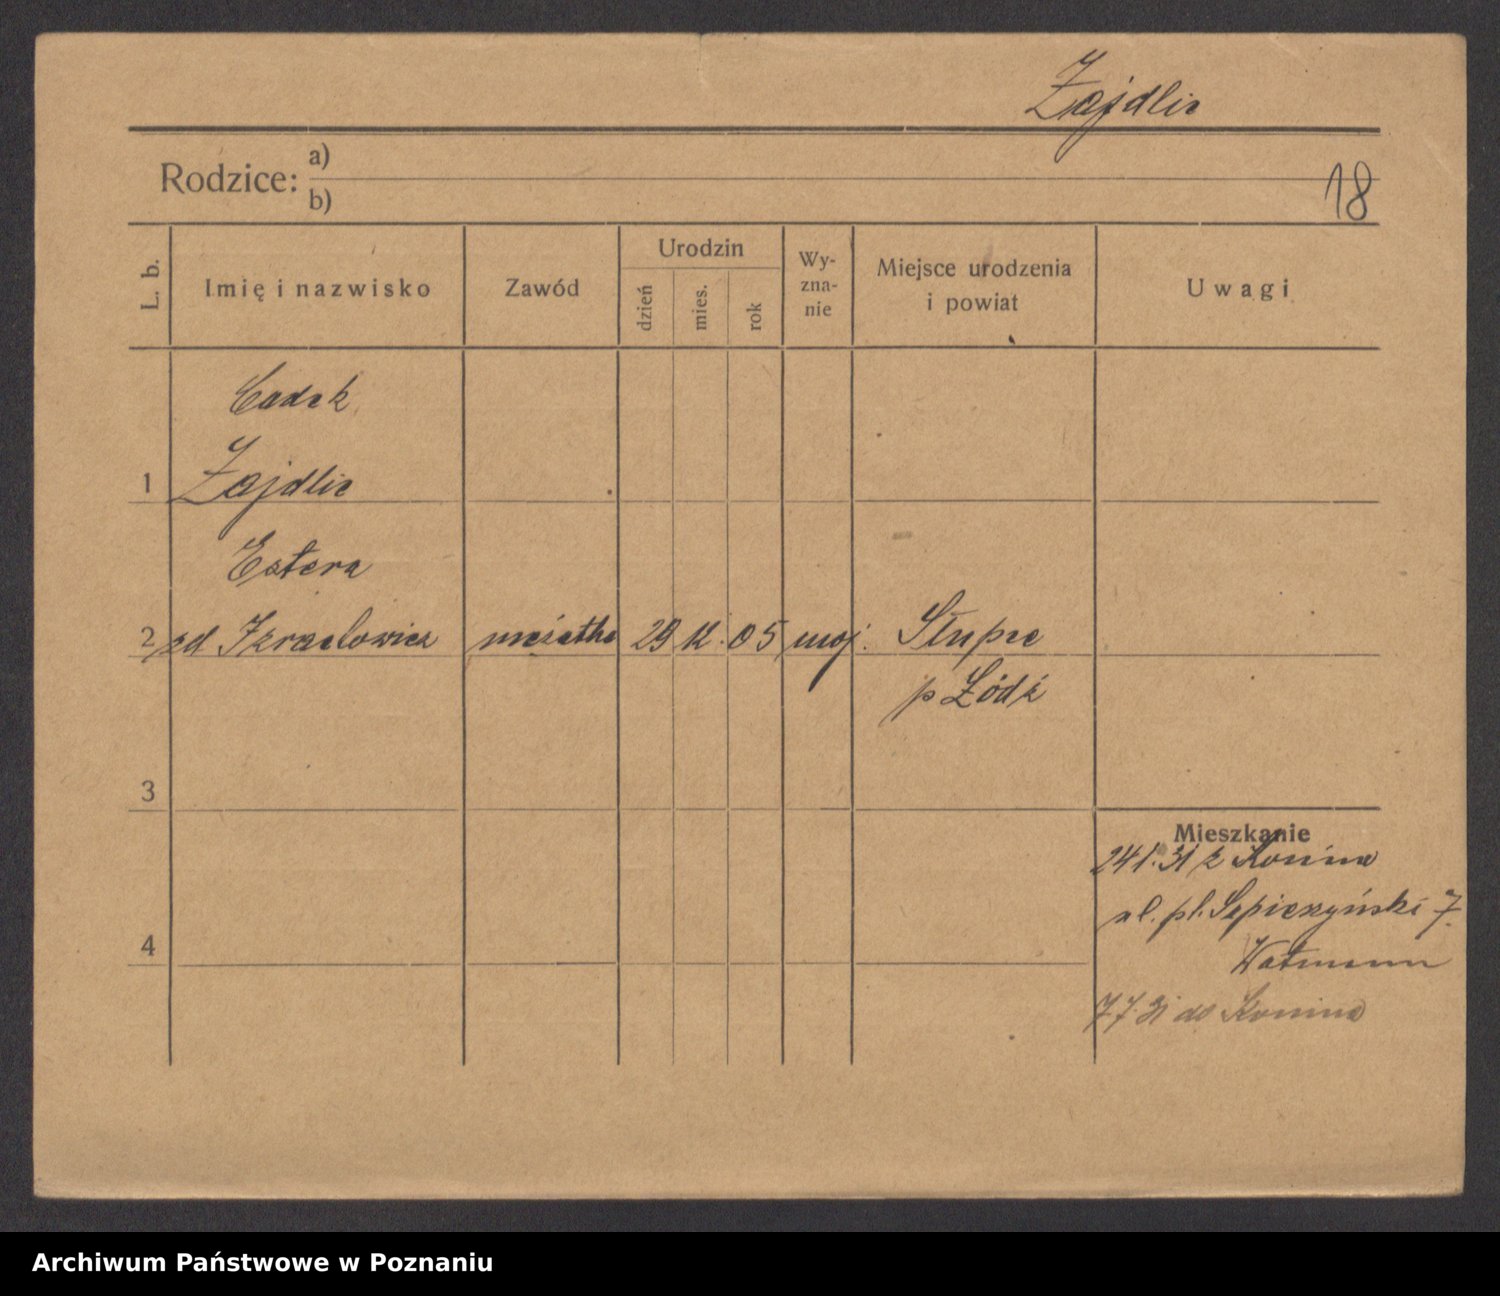 Zajdlic
Rodzice: a)
b)
18
L. b.
Imię i nazwisko
Zawód
Urodzin
dzień
mies.
rok
Wy-
zna-
nie
Miejsce urodzenia
i powiat
Uwagi
Cadek
1 Zajdlic
Estera
2 zd. Izraelowicz mężatka 29 12. 05 moj. Słupce
p Łódź
3
Mieszkanie
241.31 z Konina
ul. pl. Sapieżyński 7.
Watmann
4
7.7.31 do Konina
Archiwum Państwowe w Poznaniu